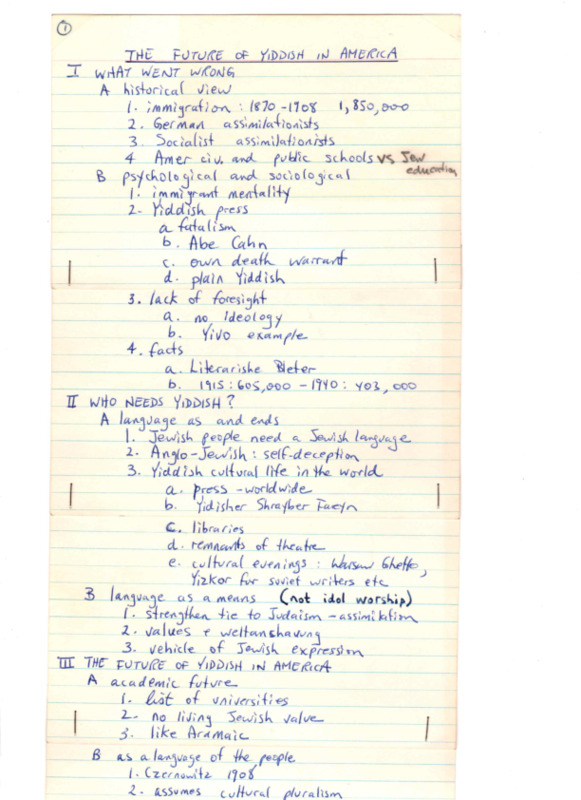 1
THE FUTURE OF YIDDISH IN AMERICA
I WHAT WENT WRONG
A historical view
1. immigration : 1870 - 1908 1,850,000
2. German assimilationists
3. Socialist assimilationists
4 Amer civ. and public schools vs Jew education
B psychological and sociological
1. immigrant mentality
2. Yiddish press
a fatalism
b. Abe Cahn
c. own death warrant
d. plain Yiddish
3. lack of foresight
a. no ideology
b. Yivo example
4. facts
a. Literarishe Bleter
b. 1915 : 605,000 - 1940 : 403,000
II WHO NEEDS YIDDISH ?
A language as and ends
1. Jewish people need a Jewish language
2. Anglo-Jewish : self-deception
3. Yiddish cultural life in the world
a. press - worldwide
b. Yidisher Shrayber Faeyn
c. libraries
d. remnants of theatre
e. cultural evenings : Warsaw Ghetto,
Yizkor for soviet writers etc
B language as a means (not idol worship)
1. strengthen tie to Judaism - assimilation
2. values + weltanshavung
3. vehicle of Jewish expression
III THE FUTURE OF YIDDISH IN AMERICA
A academic future
1. list of universities
2. no living Jewish value
3. like Aramaic
B as a language of the people
1. Czernowitz 1908
2. assumes cultural pluralism